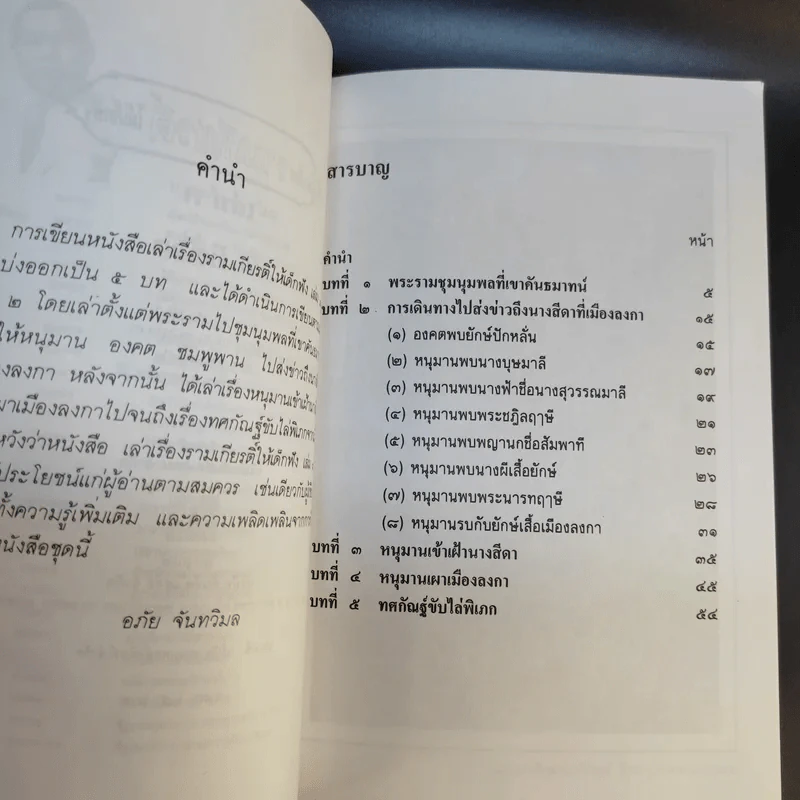 คำนำ
การเขียนหนังสือเล่าเรื่องรามเกียรติ์ให้เด็กฟัง เล่ม
บ่งออกเป็น ๕ บท และได้ดำเนินการเขียน
๒ โดยเล่าตั้งแต่พระรามไปชุมนุมพลที่เขาคันธ
ให้หนุมาน องคต ชมพูพาน ไปส่งข่าวถึง
ลงกา หลังจากนั้น ได้เล่าเรื่องหนุมานเข้าเฝ้า
ผาเมืองลงกาไปจนถึงเรื่องทศกัณฐ์ขับไล่พิเภก
หวังว่าหนังสือ เล่าเรื่องรามเกียรติ์ให้เด็กฟัง เล่ม
ประโยชน์แก่ผู้อ่านตามสมควร เช่นเดียวกับ
ทั้งความรู้เพิ่มเติม และความเพลิดเพลินจาก
นังสือชุดนี้
อภัย จันทวิมล
สารบาญ
หน้า
คำนำ
บทที่ ๑ พระรามชุมนุมพลที่เขาคันธมาทน์ ๕
บทที่ ๒ การเดินทางไปส่งข่าวถึงนางสีดาที่เมืองลงกา ๑๕
(๑) องคตพบยักษ์ปักหลั่น ๑๕
(๒) หนุมานพบนางบุษมาลี ๑๗
(๓) หนุมานพบนางฟ้าชื่อนางสุวรรณมาลี ๑๙
(๔) หนุมานพบพระชฎิลฤาษี ๒๑
(๕) หนุมานพบพญานกชื่อสัมพาที ๒๓
(๖) หนุมานพบนางผีเสื้อยักษ์ ๒๖
(๗) หนุมานพบพระนารทฤาษี ๒๘
(๘) หนุมานรบกับยักษ์เสื้อเมืองลงกา ๓๑
บทที่ ๓ หนุมานเข้าเฝ้านางสีดา ๓๕
บทที่ ๔ หนุมานเผาเมืองลงกา ๔๕
บทที่ ๕ ทศกัณฐ์ขับไล่พิเภก ๕๔